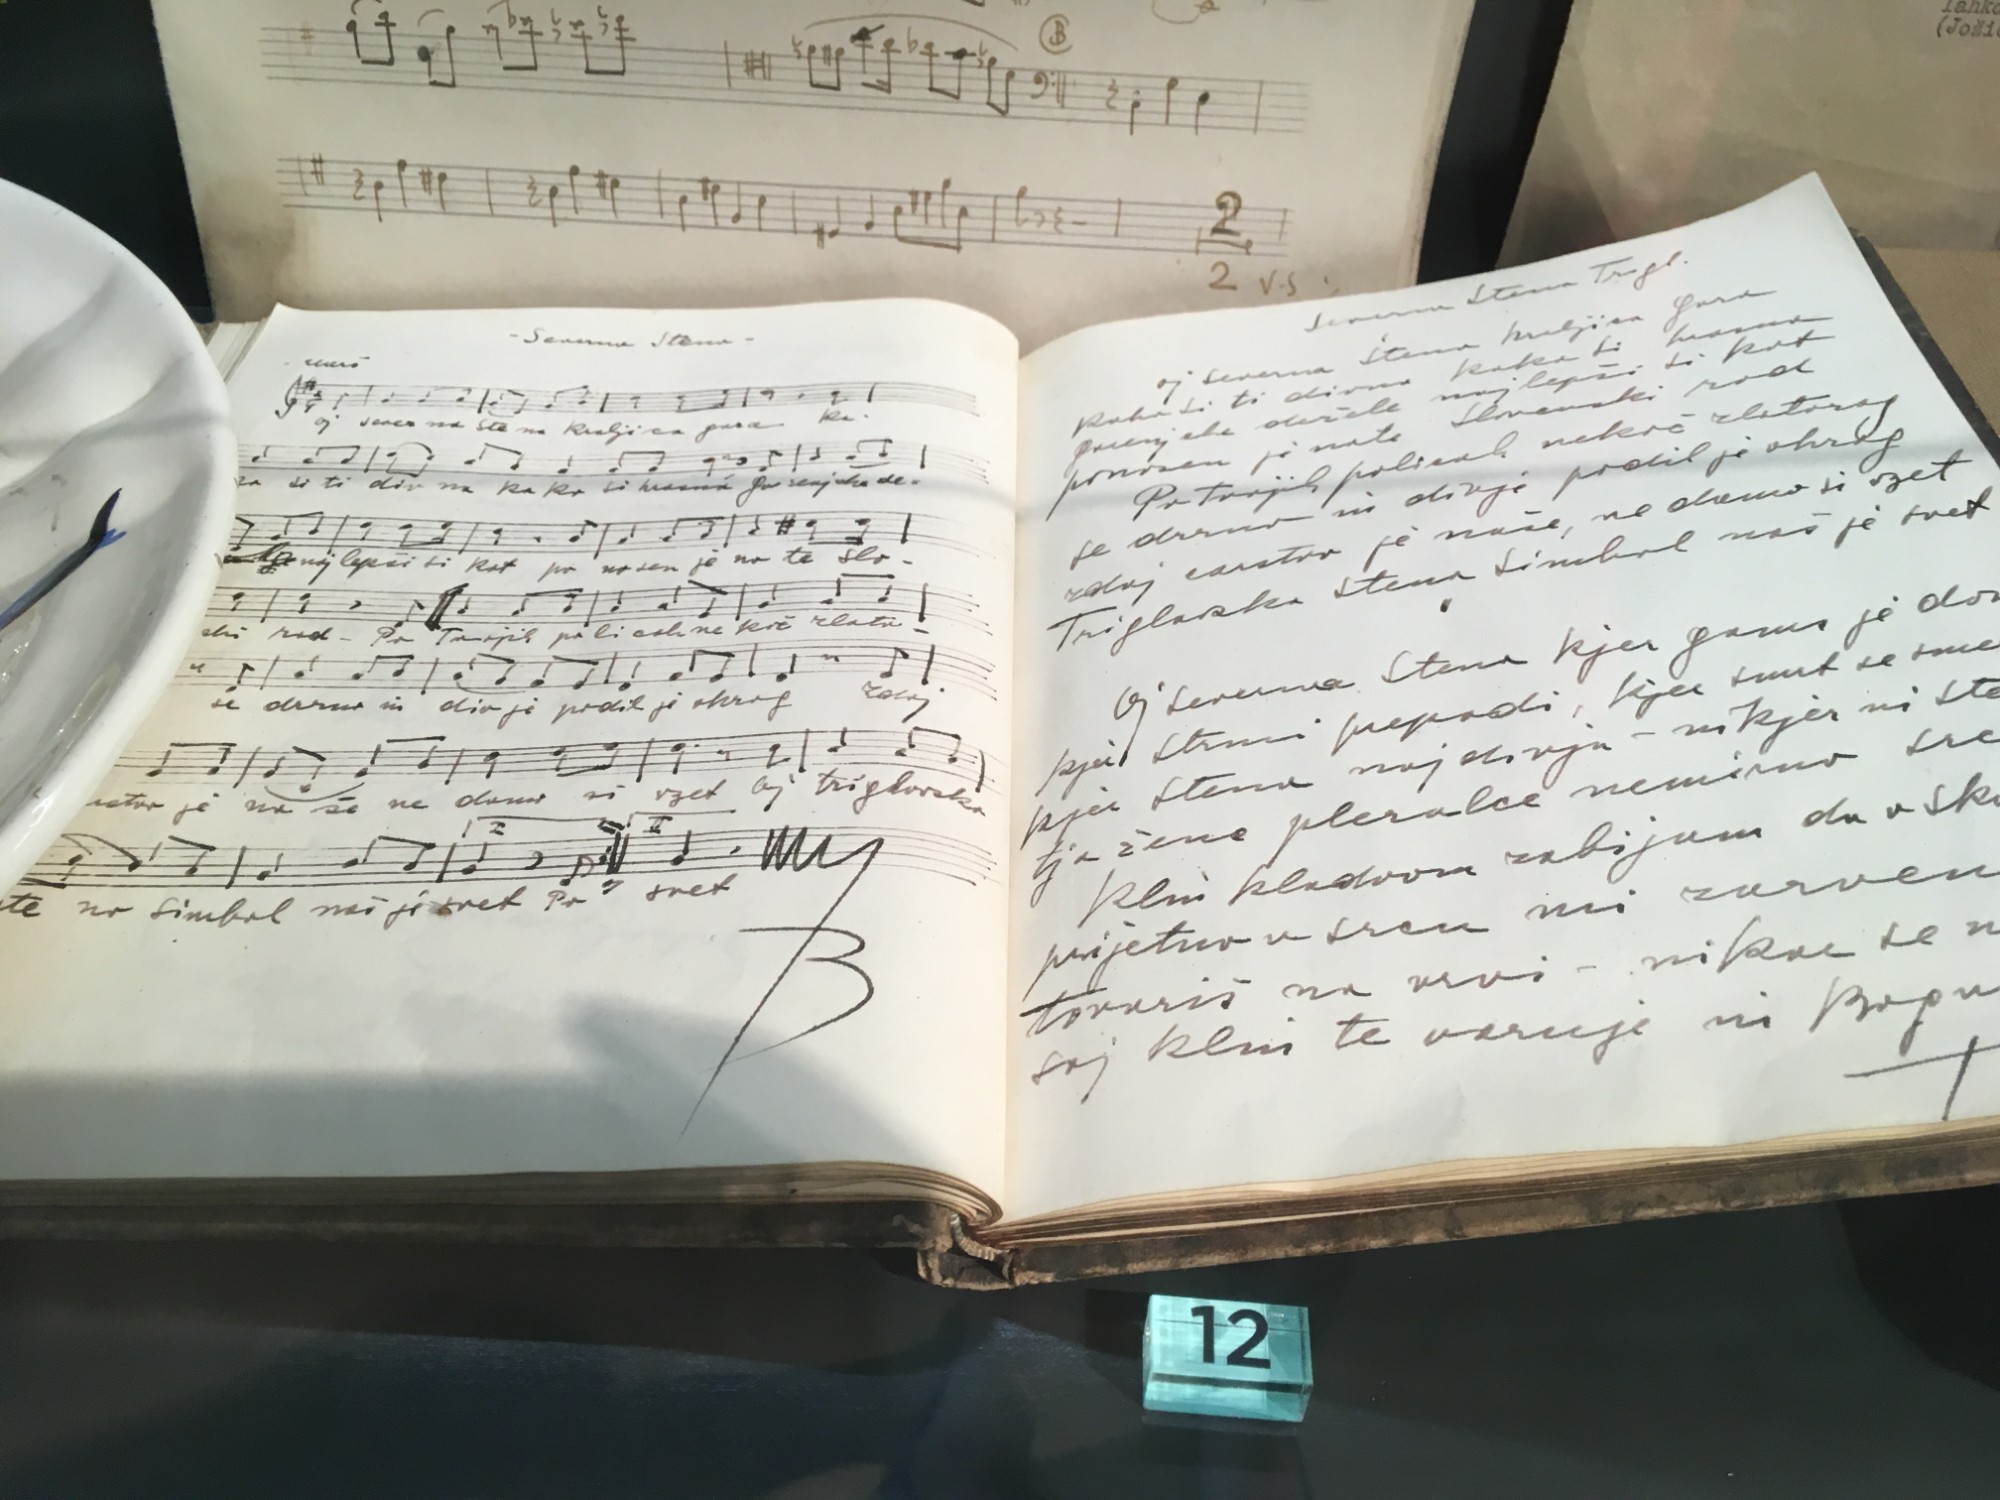 lahko
(Joži
B
2
2 V.S.
- Severna Stena -
Oj sever na ste na kraljica gora ka-
ko si ti div na ka ko si krasna Gorenjske de-
najlepši si kot po nosen je na te Slo-
ski rod - Po Tvojih policah ne koč zlato-
se drzno in div je podil je okrog zdaj
je na še ne damo si vzet Oj triglavska
I II
ste na Simbol naš je svet Po svet
Severna Stena Trigl.
Oj Severna Stena kraljica gora
kako si ti divna kako si krasna
gorenjske dežele najlepši si kot
ponosen je nate Slovenski rod
Po Tvojih policah nekoč zlatorog
se drzno in divje podil je okrog
zdaj carstvo je naše, ne damo si vzet
Triglavska Stena Simbol naš je svet
Oj Severna Stena kjer gams je dom
kjer strmi prepadi, kjer smrt se sme
kjer stena najdivja - nikjer ni ste
tja žene plezalce nemirno src
Klin kladvom zabijam da v ska
prijetno v srcu mi zazven
tovariš na vrvi - nikar se n
saj klin te varuje in
12